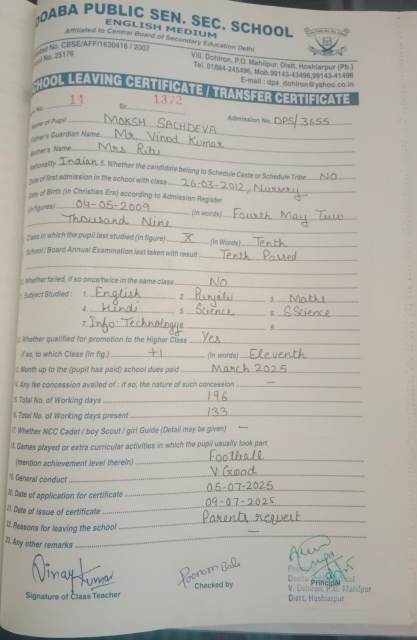 DOABA PUBLIC SEN. SEC. SCHOOL
ENGLISH MEDIUM
Affiliated to Central Board of Secondary Education Delhi
No. CBSE/AFF/1630416 / 2007
No. 25176
Vill. Dohlron, P.O. Mahilpur, Distt. Hoshiarpur (Pb.)
Tel. 01884-245496, Mob.99143-43496,99143-41496
E-mail : dps_dohlron@yahoo.co.in
SCHOOL LEAVING CERTIFICATE / TRANSFER CERTIFICATE
No. 11 Sr. 1372 Admission No. DPS/3655
Name of Pupil MOKSH SACHDEVA
Father's Guardian Name Mr Vinod Kumar
Mother's Name Mrs Ritu
Nationality Indian 5. Whether the candidate belong to Schedule Caste or Schedule Tribe NO
Date of first admission in the school with class 26-03-2012, Nursery
Date of Birth (in Christian Era) according to Admission Register
(in figures) 04-05-2009 (in words) Fourth May Two
Thousand Nine
Class in which the pupil last studied (in figure) X (in Words) Tenth
School / Board Annual Examination last taken with result Tenth Passed
Whether failed, if so once/twice in the same class NO
Subject Studied : 1. English 2. Punjabi 3. Maths
4. Hindi 5. Science 6. S.Science
7. Info. Technology 8.
Whether qualified for promotion to the Higher Class Yes
If so, to which Class (in fig.) +1 (in words) Eleventh
Month up to the (pupil has paid) school dues paid March 2025
Any fee concession availed of : if so, the nature of such concession —
15. Total No. of Working days 196
Total No. of Working days present 133
17. Whether NCC Cadet / boy Scout / girl Guide (Detail may be given) —
18. Games played or extra curricular activities in which the pupil usually took part
(mention achievement level therein) Football
19. General conduct V Good
20. Date of application for certificate 05-07-2025
21. Date of issue of certificate 09-07-2025
22. Reasons for leaving the school Parents request
23. Any other remarks —
Vinay Kumar
Signature of Class Teacher
Checked by
Principal
V. Dohlron, P.O. Mahilpur
Distt. Hoshiarpur